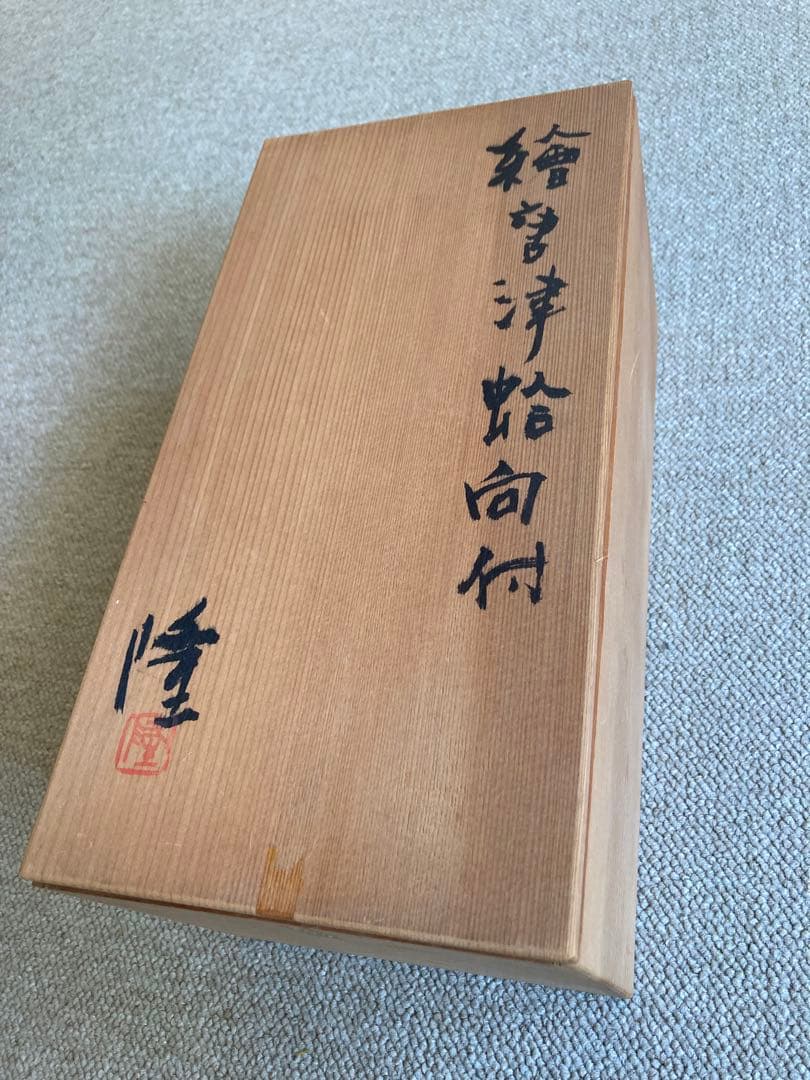 繪唐津蛤向付
隆
隆